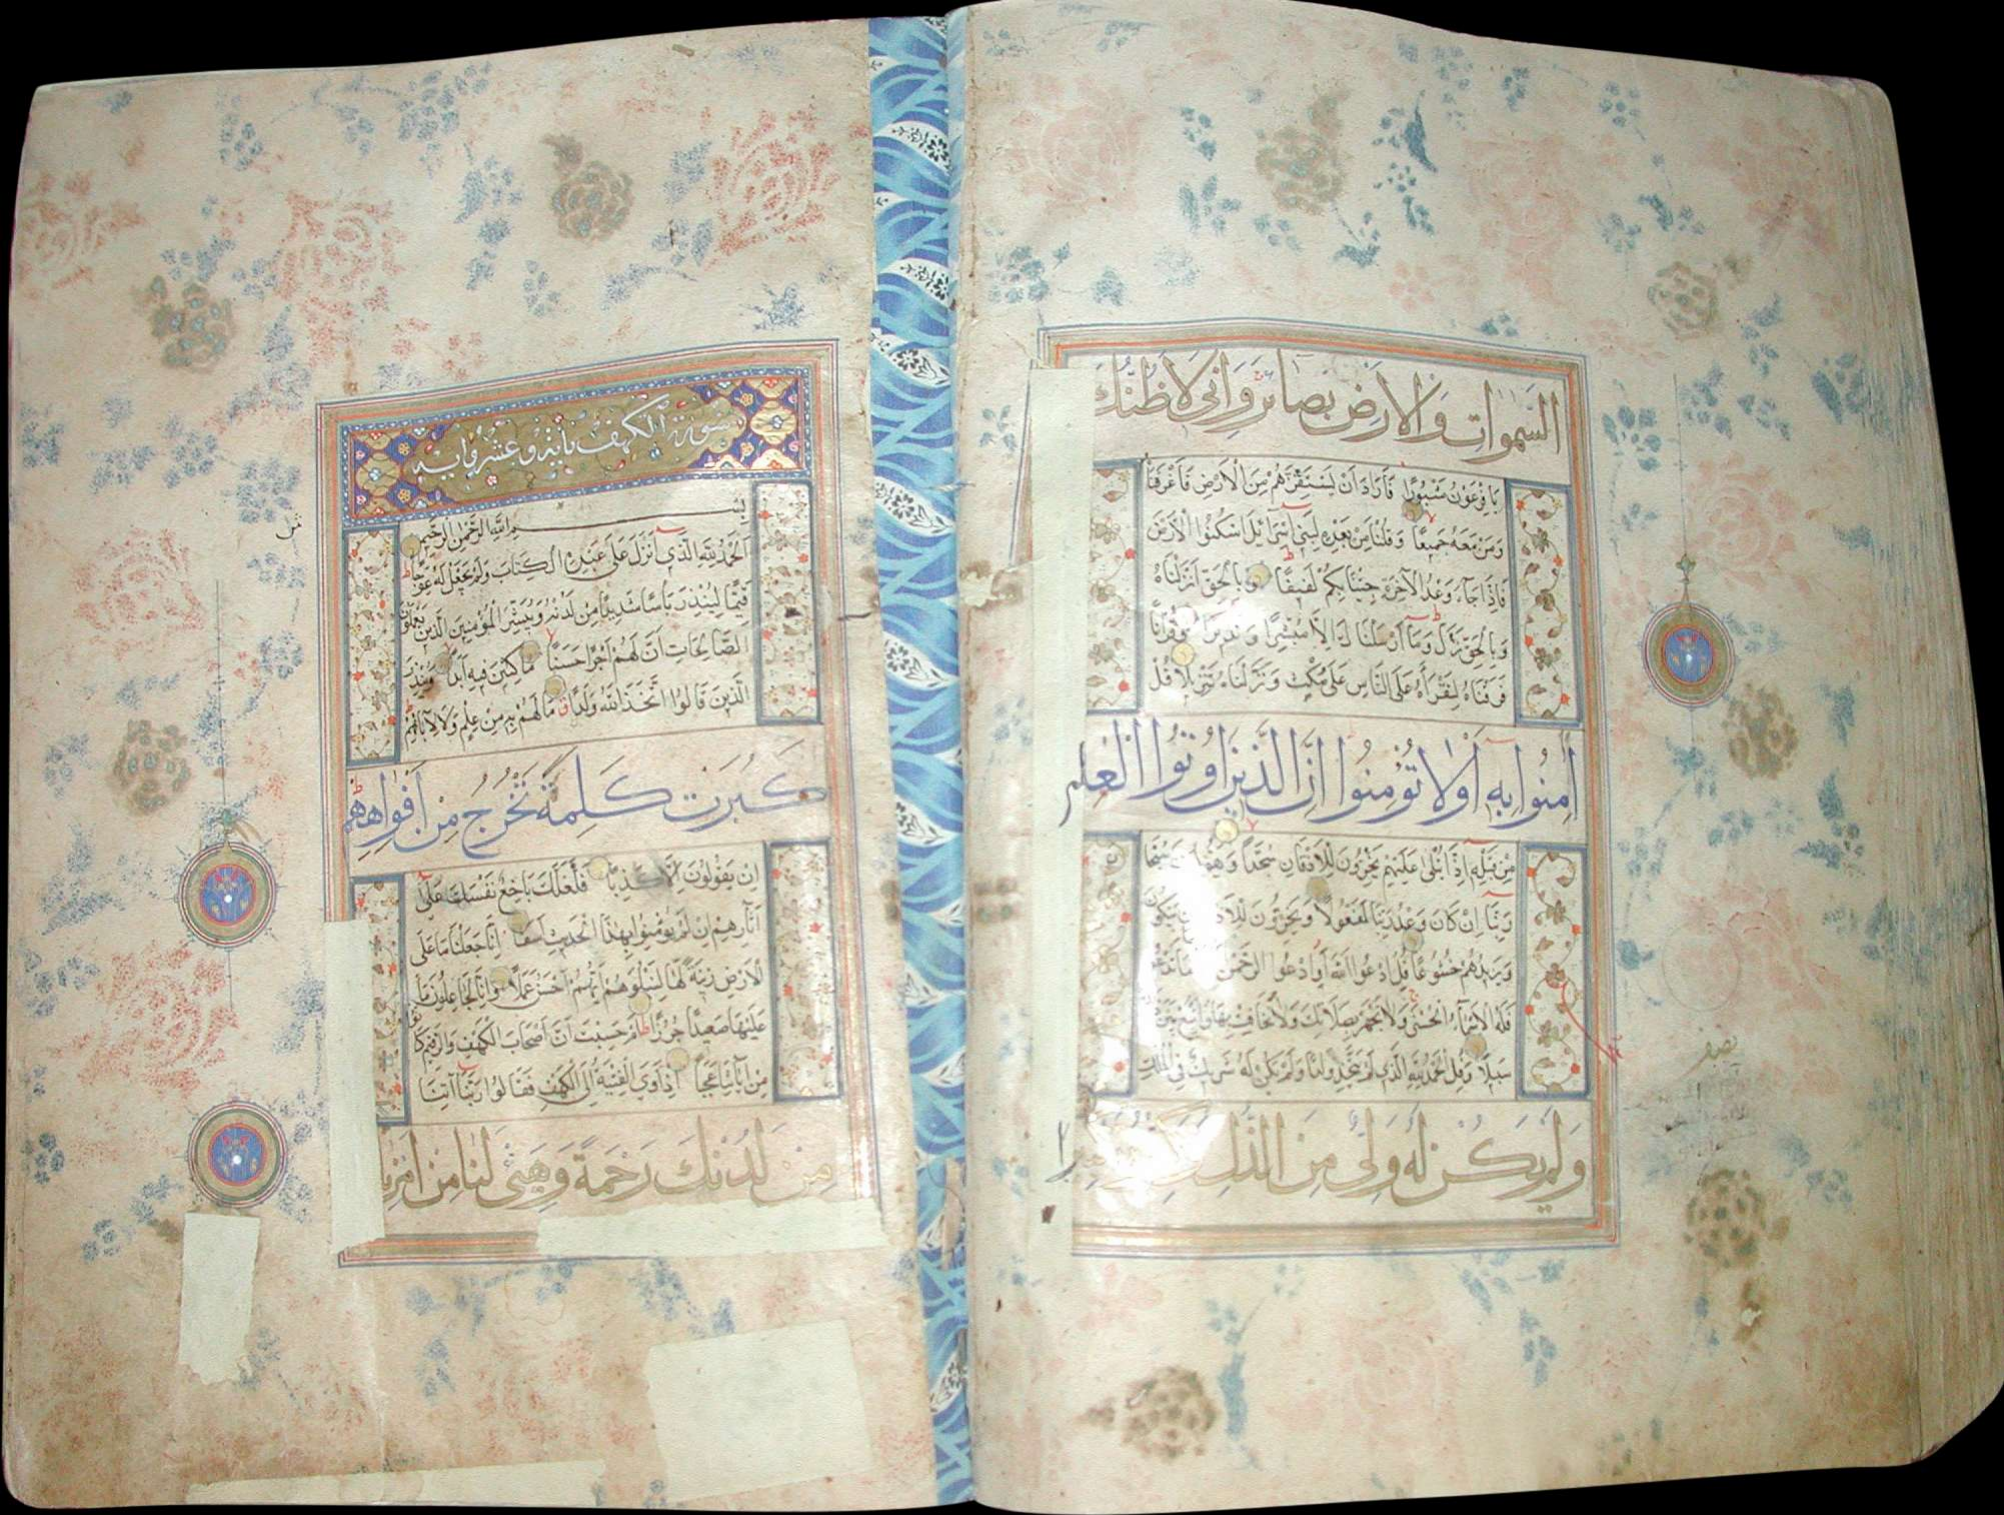 السَّمٰوَاتِ وَالْاَرْضِ بَصَائِرَ وَاِنّي لَاَظُنُّكَ
يَا فِرْعَوْنُ مَثْبُورًا فَاَرَادَ اَنْ يَسْتَفِزَّهُمْ مِنَ الْاَرْضِ فَاَغْرَقْنَاهُ
وَمَنْ مَعَهُ جَمِيعًا وَقُلْنَا مِنْ بَعْدِهِ لِبَنِي اِسْرَآئِيلَ اسْكُنُوا الْاَرْضَ
فَاِذَا جَآءَ وَعْدُ الْآخِرَةِ جِئْنَا بِكُمْ لَفِيفًا وَبِالْحَقِّ اَنْزَلْنَاهُ
وَبِالْحَقِّ نَزَلَ وَمَآ اَرْسَلْنَاكَ اِلَّا مُبَشِّرًا وَنَذِيرًا وَقُرْآنًا
فَرَقْنَاهُ لِتَقْرَاَهُ عَلَى النَّاسِ عَلَى مُكْثٍ وَنَزَّلْنَاهُ تَنْزِيلًا قُلْ
اٰمِنُوا بِهِ اَوْ لَا تُؤْمِنُوا اِنَّ الَّذِينَ اُوتُوا الْعِلْمَ
مِنْ قَبْلِهِ اِذَا يُتْلَى عَلَيْهِمْ يَخِرُّونَ لِلْاَذْقَانِ سُجَّدًا
رَبِّنَآ اِنْ كَانَ وَعْدُ رَبِّنَا لَمَفْعُولًا وَيَخِرُّونَ يَبْكُونَ
وَيَزِيدُهُمْ خُشُوعًا قُلِ ادْعُوا اللّٰهَ اَوِ ادْعُوا الرَّحْمٰنَ
فَلَهُ الْاَسْمَآءُ الْحُسْنَى وَلَا تَجْهَرْ بِصَلَاتِكَ وَلَا تُخَافِتْ بِهَا وَابْتَغِ بَيْنَ
سَبِيلًا وَقُلِ الْحَمْدُ لِلّٰهِ الَّذِي لَمْ يَتَّخِذْ وَلَدًا وَلَمْ يَكُنْ لَهُ شَرِيكٌ فِي الْمُلْكِ
وَلَمْ يَكُنْ لَهُ وَلِيٌّ مِنَ الذُّلِّ
سورة الكهف مائة وعشر اية
بِسْمِ اللّٰهِ الرَّحْمٰنِ الرَّحِيمِ
اَلْحَمْدُ لِلّٰهِ الَّذِي اَنْزَلَ عَلَى عَبْدِهِ الْكِتَابَ وَلَمْ يَجْعَلْ لَهُ عِوَجًا
قَيِّمًا لِيُنْذِرَ بَاْسًا شَدِيدًا مِنْ لَدُنْهُ وَيُبَشِّرَ الْمُؤْمِنِينَ الَّذِينَ يَعْمَلُونَ
الصَّالِحَاتِ اَنَّ لَهُمْ اَجْرًا حَسَنًا مَاكِثِينَ فِيهِ اَبَدًا وَيُنْذِرَ
الَّذِينَ قَالُوا اتَّخَذَ اللّٰهُ وَلَدًا مَا لَهُمْ بِهِ مِنْ عِلْمٍ وَلَا لِآبَائِهِمْ
كَبُرَتْ كَلِمَةً تَخْرُجُ مِنْ اَفْوَاهِهِمْ
اِنْ يَقُولُونَ اِلَّا كَذِبًا فَلَعَلَّكَ بَاخِعٌ نَفْسَكَ عَلَى
آثَارِهِمْ اِنْ لَمْ يُؤْمِنُوا بِهٰذَا الْحَدِيثِ اَسَفًا اِنَّا جَعَلْنَا مَا عَلَى
الْاَرْضِ زِينَةً لَهَا لِنَبْلُوَهُمْ اَيُّهُمْ اَحْسَنُ عَمَلًا وَاِنَّا لَجَاعِلُونَ مَا
عَلَيْهَا صَعِيدًا جُرُزًا اَمْ حَسِبْتَ اَنَّ اَصْحَابَ الْكَهْفِ وَالرَّقِيمِ كَانُوا
مِنْ آيَاتِنَا عَجَبًا اِذْ اَوَى الْفِتْيَةُ اِلَى الْكَهْفِ فَقَالُوا رَبَّنَا آتِنَا
مِنْ لَدُنْكَ رَحْمَةً وَهَيِّئْ لَنَا مِنْ اَمْرِنَا